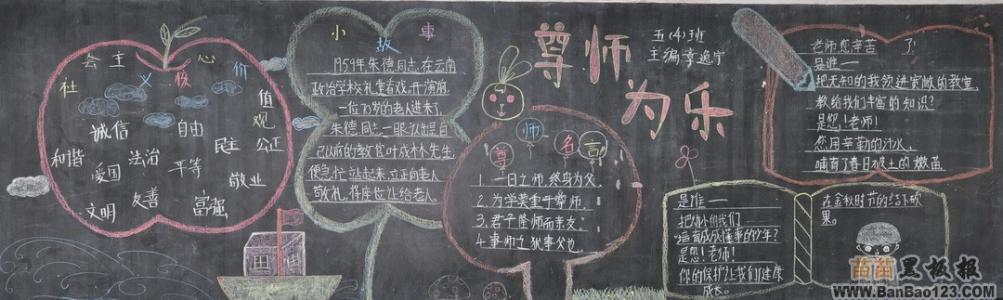 社会主义核心价值观
诚信
自由
民主
公正
和谐
爱国
法治
平等
敬业
文明
友善
富强
小故事
1959年朱德同志在云南
政治学校礼堂看戏,开演前
一位70岁的老人进来了。
朱德同志一眼认出是
自己以前的教官叶成林先生,
便急忙站起来,立正向老人
敬礼,将座位让给老人
尊师为乐
五(4)班
尊师名言
1.一日之师,终身为父。
2.为学莫重于尊师。
3.君子隆师而亲友。
4.事师之犹事父也。
老师您辛苦了!
是谁——
把无知的我领进宽敞的教室,
教给我们丰富的知识?
是您!老师!
您用辛勤的汗水,
哺育了春日
的嫩苗
是谁——
把
我们
成
懂事的少年?
是您!老师!
你的保护让我们健康
成长。
在金秋时节
果。
苗苗黑板报
www.BanBao123.com